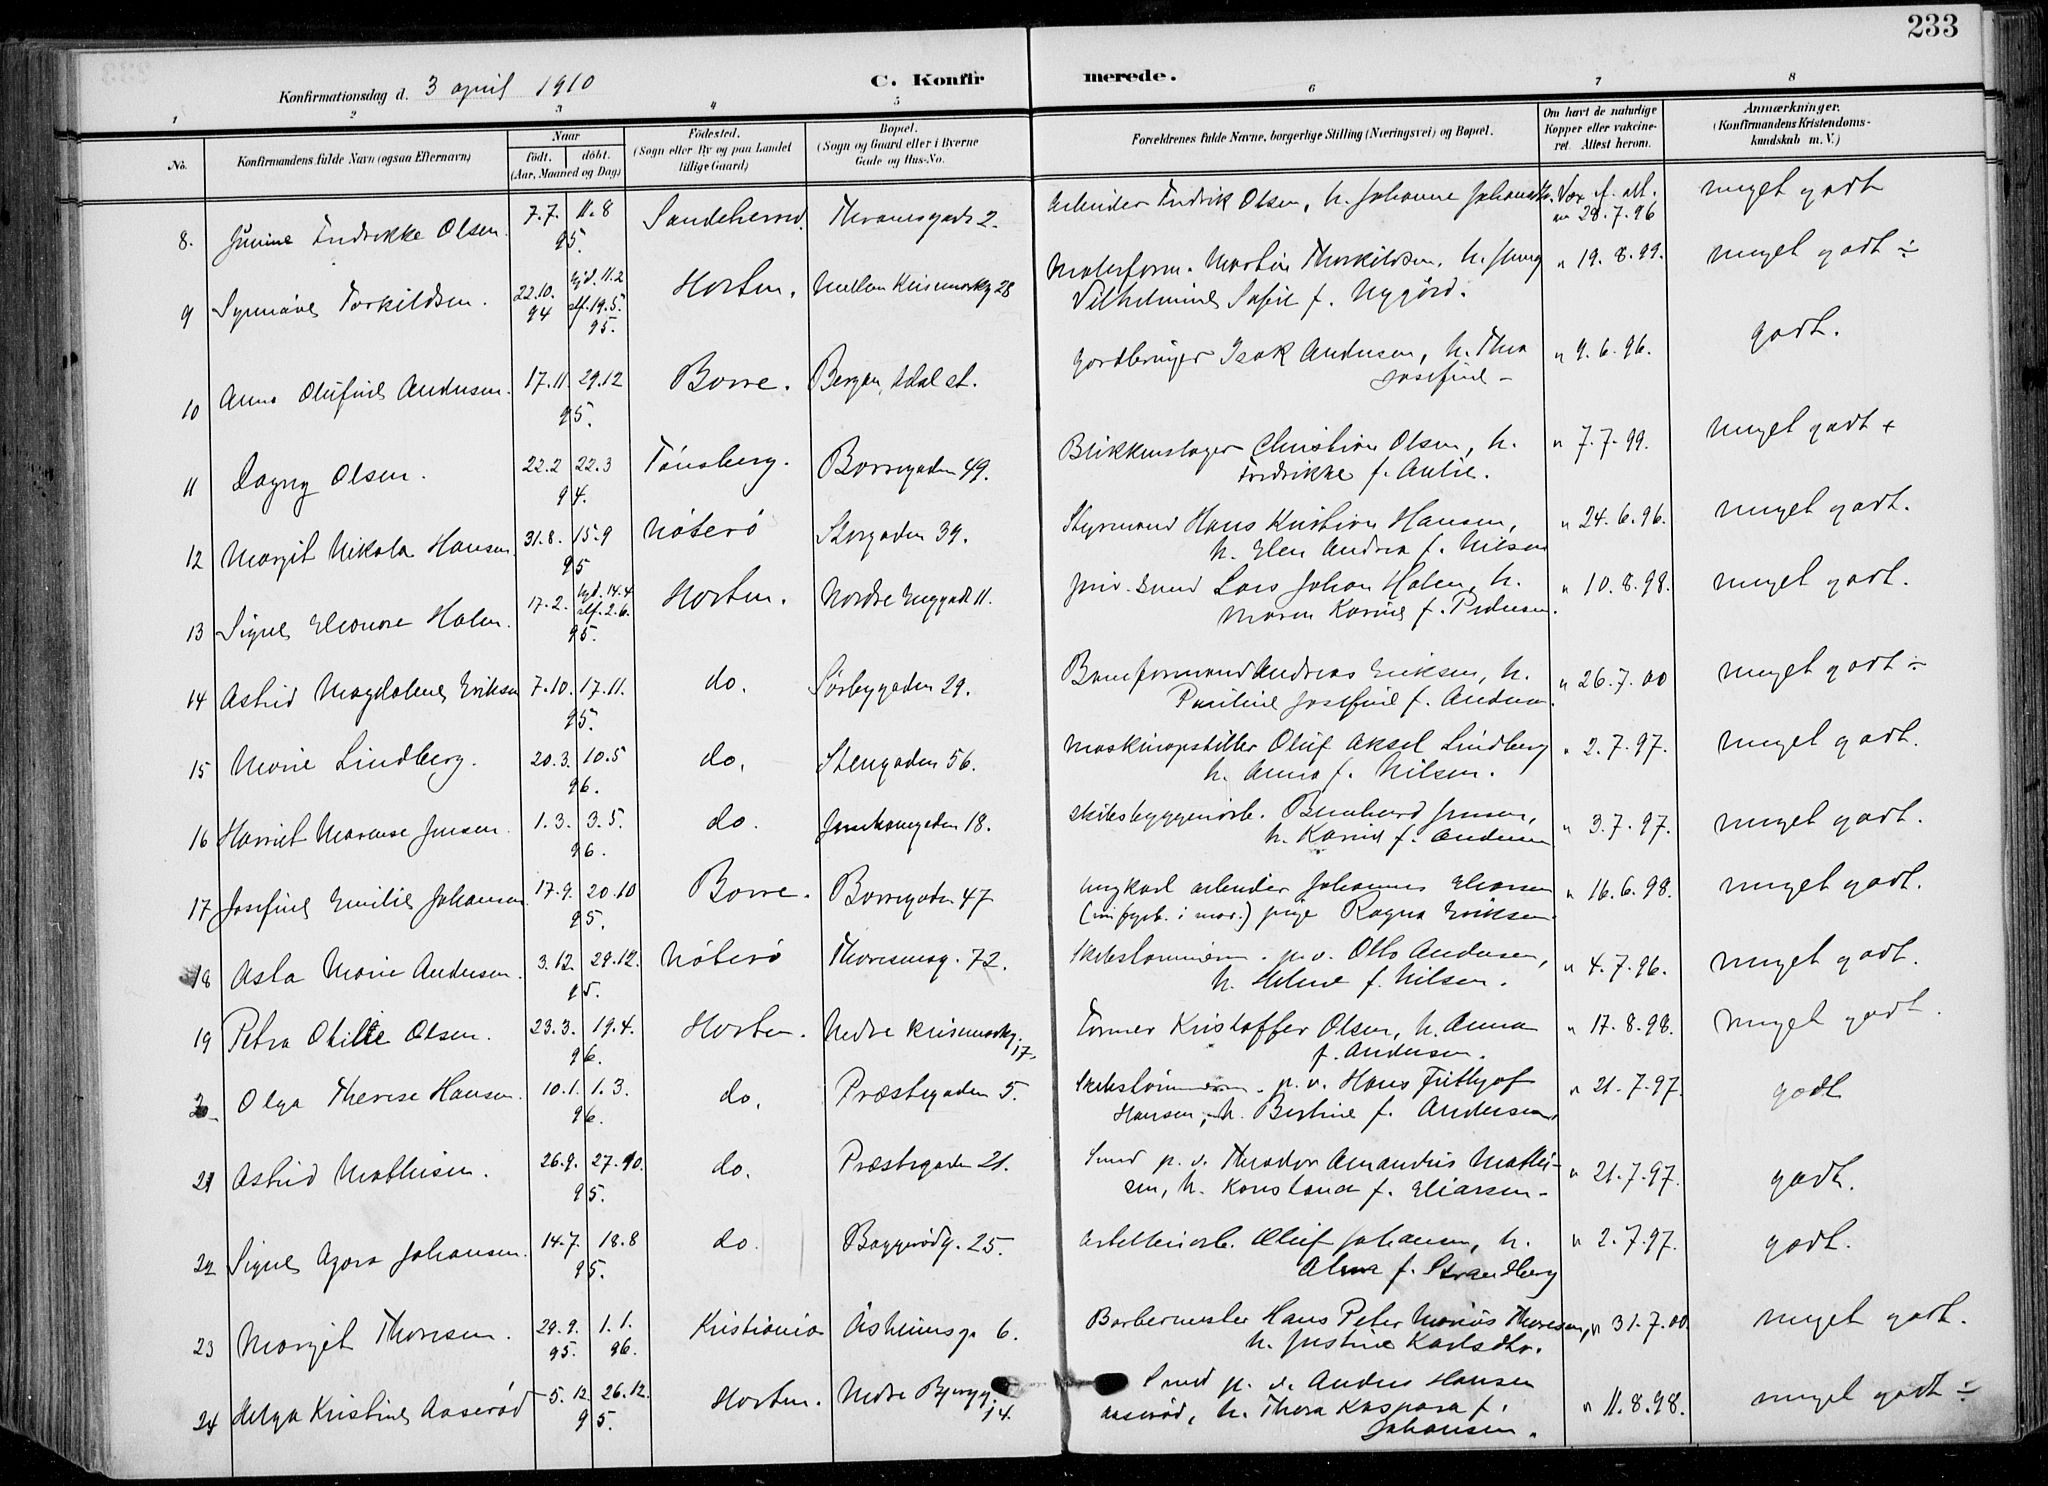 233
Konfirmationsdag d. 3 april 1910 C. Konfirmerede.
1 2 3 4 5 6 7 8
No. Konfirmandens fulde Navn (ogsaa Efternavn) Naar født. døbt. (Aar, Maaned og Dag) Fødested. (Sogn eller By og paa Landet tillige Gaard) Bopæl. (Sogn og Gaard eller i Byerne Gade og Hus-No. Forældrenes fulde Navne, borgerlige Stilling (Næringsvei) og Bopæl. Om havt de naturlige Kopper eller vakcineret. Attest herom. Anmærkninger. (Konfirmandens Kristendomskundskab m. V.)
8. Fredrikke Olsen. 7.7. 11.8 95. Sandeherred. 2. Arbeider Fredrik Olsen, h. Johanne Vax. f. att. 28.7.96 meget godt
9 Synnøve Torkildsen. 22.10. 94 hjd. 11.2 stf. 19.5. 95. Horten. Mellem 28 Malerform. Martin Thorkildsen, h.
Vilhelmine Sofie f. Nygård. " 19.8.99. meget godt ÷
10 Anna Olufine Andersen. 17.11. 29.12 95. Borre. Bergan, Adal st. Gardbruger Isak Andersen, h. Thea
Josefine – " 9.6.96. godt.
11 Dagny Olsen. 22.2 22.3 94. Tönsberg. Borregaden 49. Blikkenslager Christian Olsen, h.
Fredrikke f. " 7.7.99. meget godt +
12 Margit Nikola Hansen 31.8. 15.9 95 Nöterö Storgaden 39. Styrmand Hans Kristian Hansen,
h. Elen Andrea f. Nilsen " 24.6.96. meget godt.
13 Signe Eleonore Holm. 17.2. hjd. 14.4 stf. 2.6. 95. Horten. Nordre Enggade 11. smed Lars Johan Holm, h.
Maren Karine f. Pedersen. " 10.8.98. meget godt.
14 Astrid Magdalene Eriksen 7.10. 17.11. 95. do. Sörbygaden 29. Andreas Eriksen, h.
Pauline Josefine f. Andersen. " 26.7.00 meget godt ÷
15 Marie Lindberg. 20.3. 10.5 96. do. Stengaden 56. Maskinopstiller Oluf Aksel Lindberg
h. Anna f. Nilsen. " 2.7.97. meget godt.
16 Harriet Marense Jensen. 1.3. 3.5. 96. do. 18. Skibsbyggeriarb. Bernhard Jensen,
h. Karine f. Andersen " 3.7.97. meget godt.
17 Josefine Emilie Johansen 17.9. 20.10 95. Borre. Borregaden 47 ungkarl arbeider Johannes Eliasen
pige Ragna Eriksen. " 16.6.98. meget godt.
18 Asta Marie Andersen. 3.12. 29.12. 95. Nöterö Thoresensg. 72. Skibstömmerm. p.v. Otto Andersen,
h. Helene f. Nilsen. " 4.7.96. meget godt.
19 Petra Otilie Olsen. 23.3. 19.4. 96. Horten. Nedre 17. Former Kristoffer Olsen, h. Anna
f. Andersen. " 17.8.98. meget godt.
20 Olga Therese Hansen. 10.1. 1.3. 96. do. Præstegaden 5. Skibstömmerm. p.v. Hans Frithjof
Hansen, h. Bertine f. Andersen. " 21.7.97. godt
21 Astrid Mathisen. 26.9. 27.10. 95. do. Præstegaden 21. Smed p.v. Theodor Amandus Mathi-
sen, h. Konstance f. Eliassen. " 21.7.97. godt.
22 Signe Agora Johansen. 14.7. 18.8 95. do. Baggerödg. 25. Oluf Johansen, h.
Alma f. Strandberg " 2.7.97. godt.
23 Margit Thoresen. 29.9. 95. 1.1. 96. Kristiania Åsheimsg. 6. Barbermester Hans Peter Marius Thoresen,
h. Justine Karlsdtr. " 31.7.00. meget godt.
24 Helga Kristine Aaseröd 5.12. 26.12. 95. Horten. Nedre 14. Smed p.v. Anders Hansen
Aaseröd, h. Thora Kaspara f.
Johansen. " 11.8.98. meget godt ÷